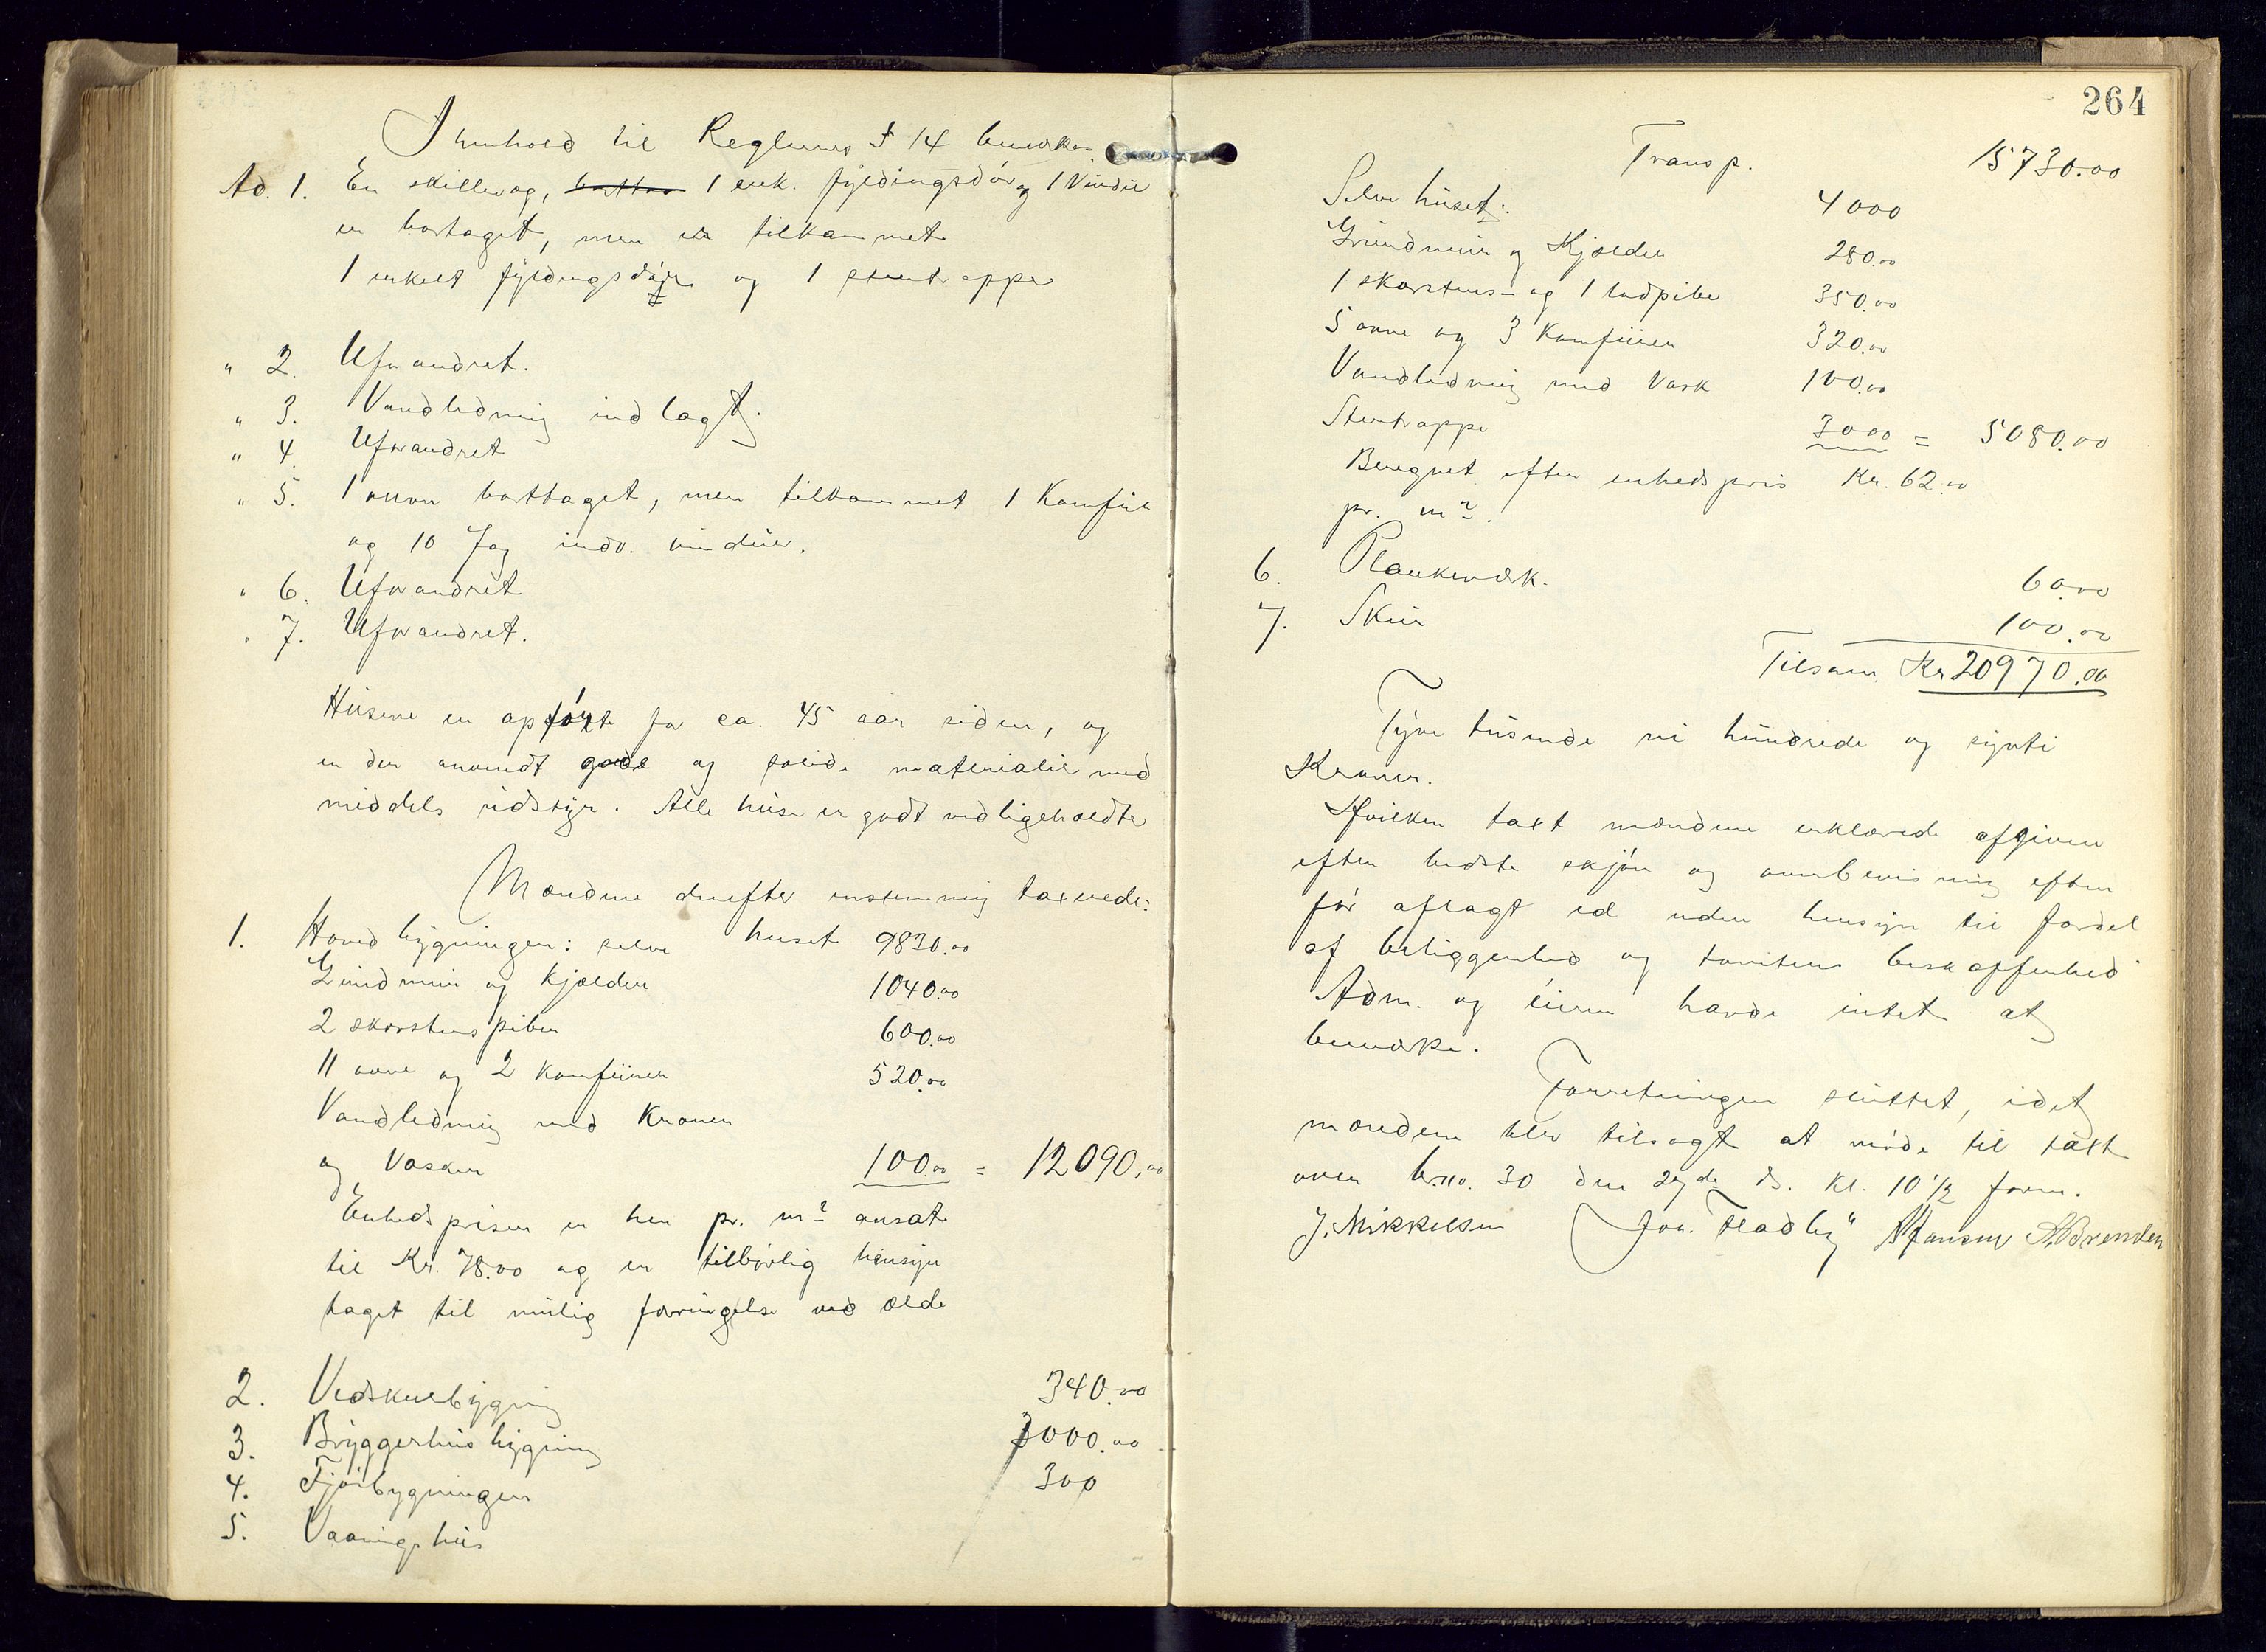 I henhold til Reglernes § 14 bemærkes
Ad. 1. En skillevæg, 1 enk. fyldingsdør og 1 Vindu
er bortaget, men er tilkommet
1 enkelt fyldingsdør og 1 stentrappe
" 2. Uforandret.
" 3. Vandledning indlagt.
" 4. Uforandret
" 5. 1 ovn borttaget, men tilkommet 1 Komfur
og 10 Fag indv. vinduer.
" 6. Uforandret
" 7. Uforandret.
Husene er opført for ca. 45 aar siden, og
er der anvendt gode og solide materialier med
middels udstyr. Alle huse er godt vedligeholdte
Mændene derefter enstemmig taxerede:
1. Hovedbygningen: selve huset 9830.00
Grundmur og Kjelder 1040.00
2 skorstenspiber 600.00
11 ovne og 2 komfurer 520.00
Vandledning med Kraner
og Vasker 100.00 = 12090.00
Enhedsprisen er her pr. m² ansat
til Kr. 78.00 og er tilbørlig hensyn
taget til mulig forringelse ved ælde
2. Vedskurbygning 340.00
3. Bryggerhusbygning 3000.00
4. Fjøsbygningen 300
5. Vaaningshus
264
Transp. 15730.00
Selve huset: 4000
Grundmur og Kjelder 280.00
1 skorstens- og 1 ludpibe 350.00
5 ovne og 3 Komfurer 320.00
Vandledning med Vask 100.00
Stentrappe 30.00 = 5080.00
Beregnet efter enhedspris Kr. 62.00
pr. m².
6. Plankeværk. 60.00
7. Skur 100.00
Tilsam. Kr 20970.00
Tyve tusende ni hundrede og sytti
Kroner.
Hvilken taxt mændene erklærede afgiven
efter bedste skjøn og overbevisning efter
før aflagt ed uden hensyn til fordel
af beliggenhed og tomtens beskaffenhed
Adm. og eieren havde intet at
bemærke.
Forretningen sluttet, idet
mændene blev tilsagt at møde til taxt
over br.no. 30 den 27de ds. Kl. 10 ½ form.
J. Mikkelsen Joh. Fladby A Hansen A. Brenden